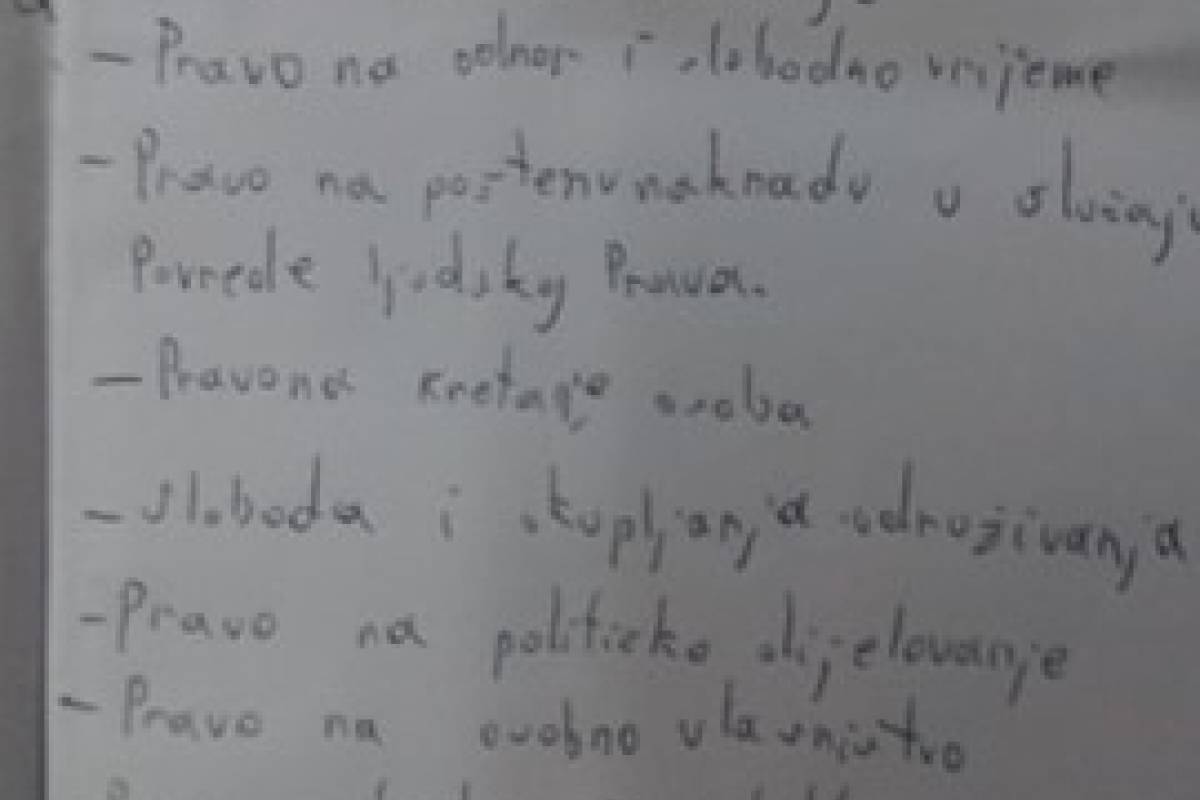 - Pravo na odmor i slobodno vrijeme
- Pravo na poštenu naknadu u slučaju
Povrede ljudsky Prava.
- Pravo na kretanje osoba
- sloboda i skupljanja udruživanja
- Pravo na politicko dijelovanje
- Pravo na osobno vlasništvo